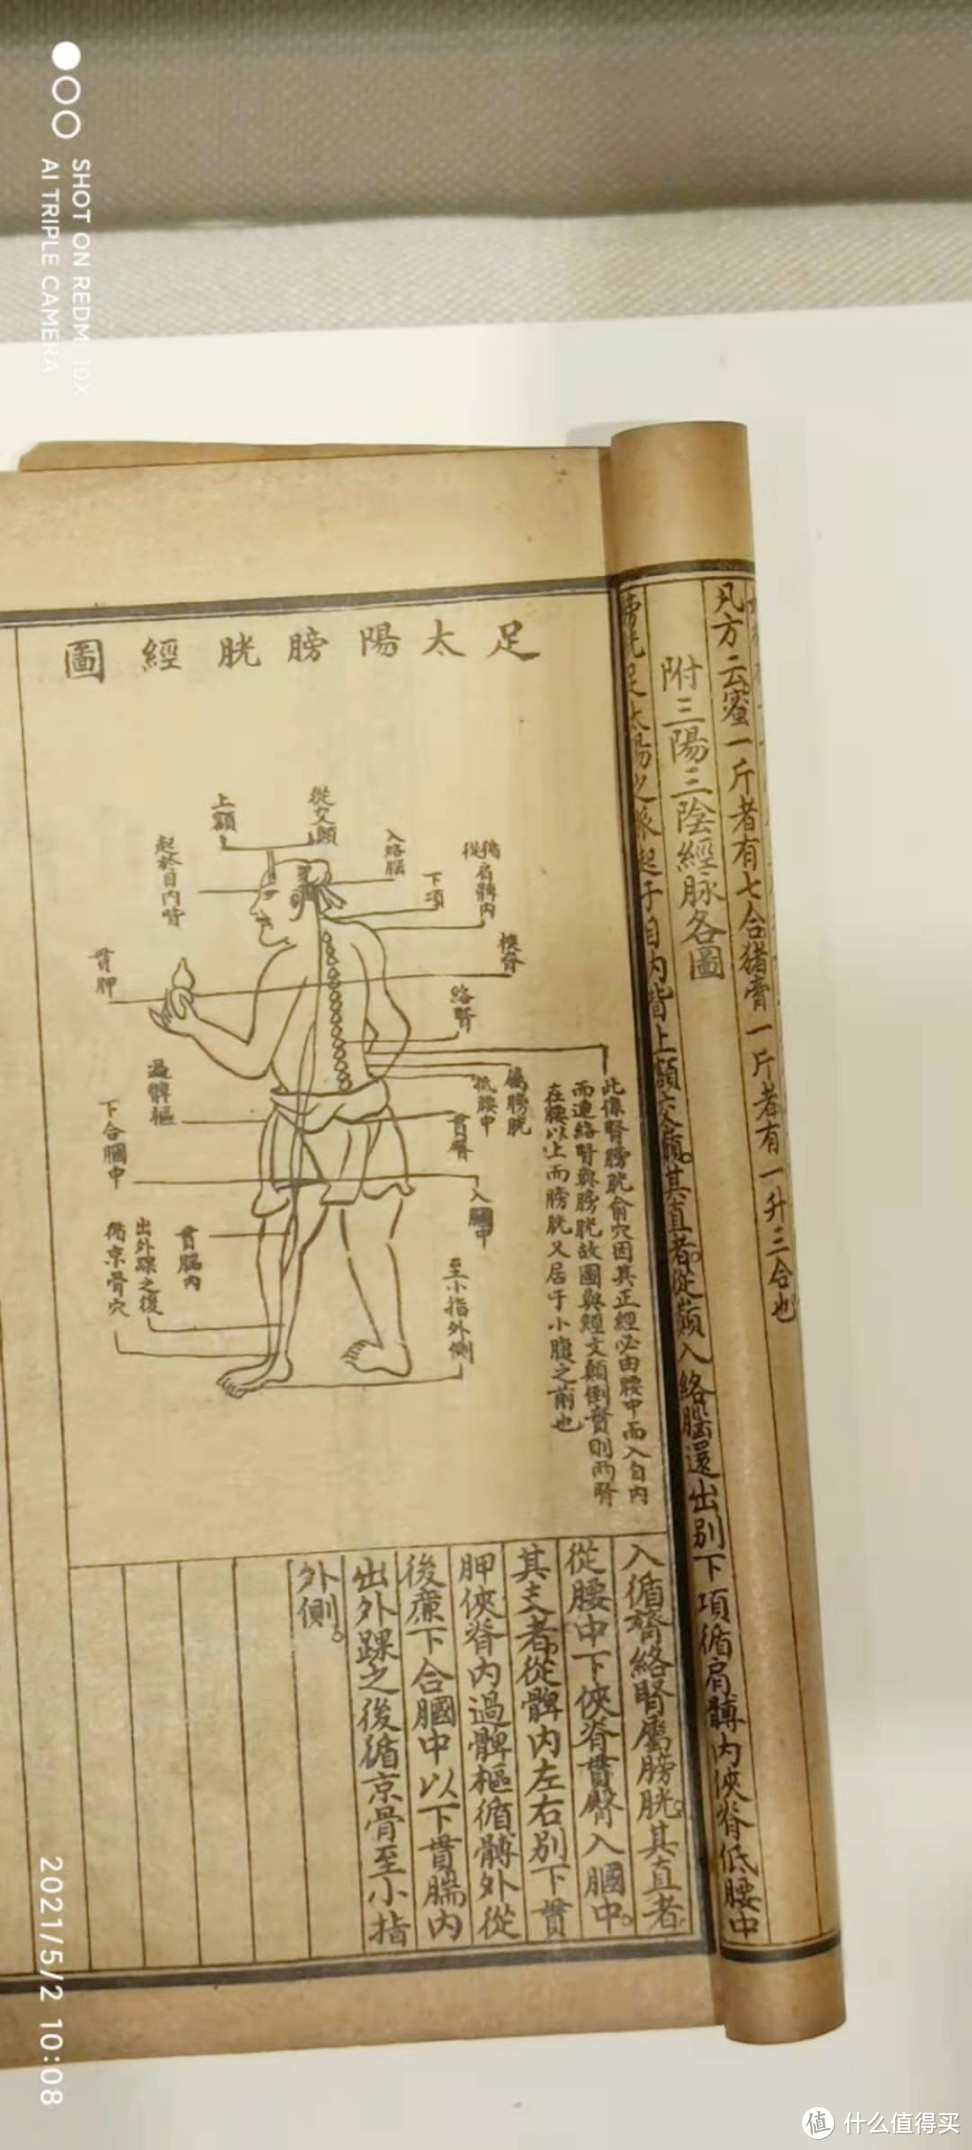 凡方云蜜一斤者有七合猪膏一斤者有一升三合也
附三陽三陰經脉各圖
膀胱足太陽之脉起于目內眥上額交巔。其直者。從巔入絡腦還出别下項循肩髆內俠脊低腰中
足太陽膀胱經圖
從交巔
上額
起於目內眥
入絡腦
下項
循肩髆內
從
挾脊
貫胛
絡腎
屬膀胱
抵腰中
過髀樞
貫臀
下合膕中
入膕中
貫腨內
出外踝之後
循京骨穴
至小指外側
此像腎膀胱俞穴因其正經必由腰中而入自內
而連絡腎與膀胱故圖與經文顛倒貫則两腎
在腰以上而膀胱又居于小腹之前也
入循膂絡腎屬膀胱。其直者
從腰中下俠脊貫臀入膕中。
其支者。從髆內左右别下貫
胛俠脊內過髀樞循髀外從
後亷下合膕中以下貫腨內
出外踝之後循京骨至小指
外側。
SHOT ON REDMI 10X
AI TRIPLE CAMERA
2021/5/2 10:08
值 什么值得买